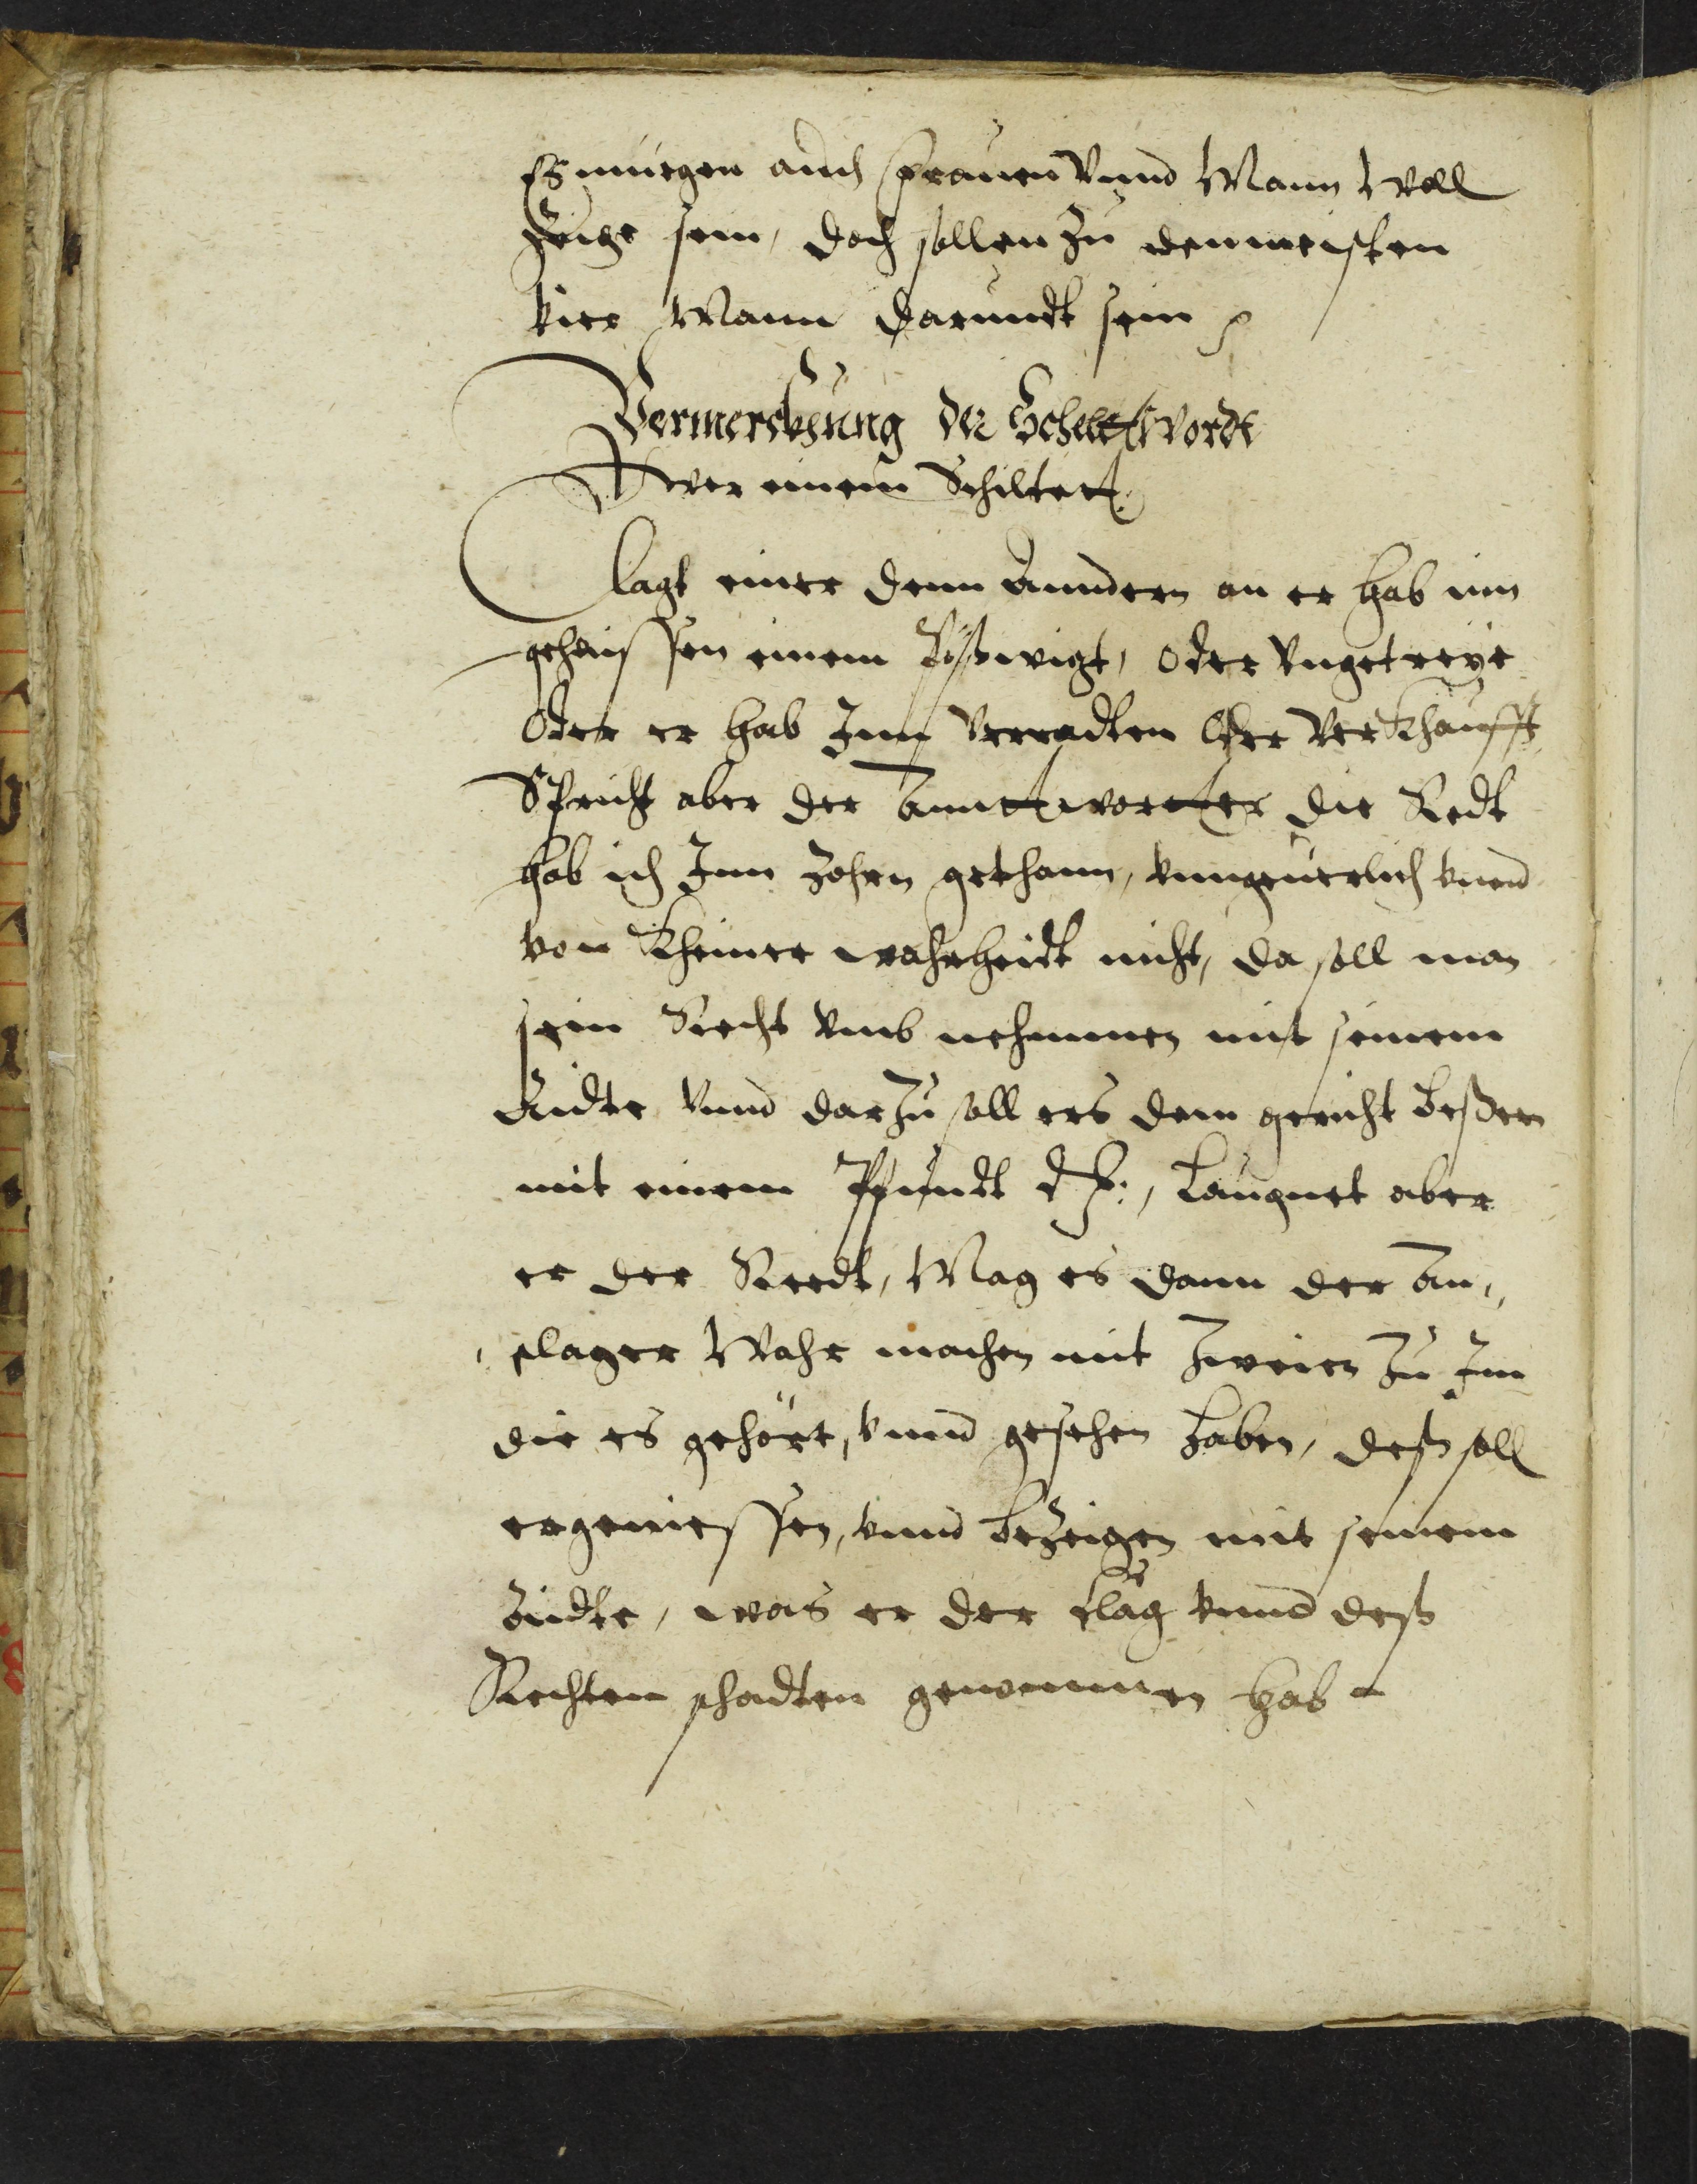 Es muegen auch Frauen vnnd Mann woll
Zeuge sein, doch sollen zu den meisten
vier Mann darundt sein
Vermerckhung der Scheltwordt
Wer einem Schiltett
Clagt einer denn Anndern an er hab inn
gehaissen einem Bößwigt, oder vngetreye
Oder er hab Inn verradten oder verkhaufft
Spricht aber der Anntwortter die Redt
hab ich Inn Zohrn gethann, vnngeuerlich vnnd
von kheiner wahrheidt nicht, da soll man
sein Recht vmb nehmmen mit seinem
Aidte vnnd darzu soll ers dem gericht beßern
mit einem Pfundt dß:, Laugnet aber
er der Reedt, Mag es dann der An,,
clager Wahr machen mit Zweien zu Im
die es gehört, vnnd gesehen haben, deß soll
er geniessen, vnnd bezeigen mit seinem
Aidte, was er der clag vnnd deß
Rechten schadten genommen hab